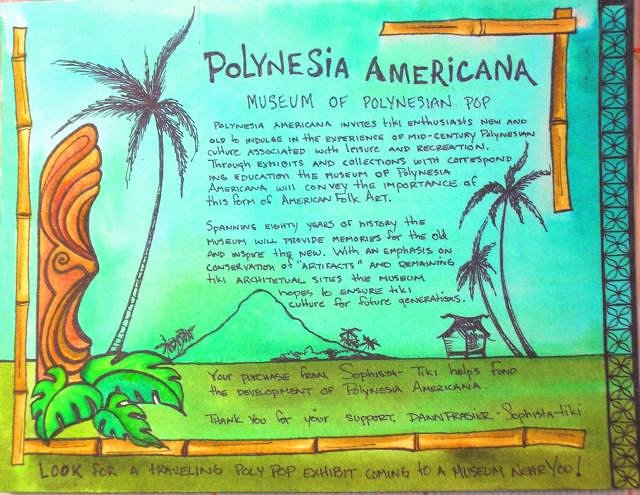 POLYNESIA AMERICANA
MUSEUM OF POLYNESIAN POP
POLYNESIA AMERICANA INVITES tiki ENTHUSIASTS NEW AND
OLD to INDULGE IN THE EXPERIENCE OF MID-CENTURY Polynesian
culture ASSOCIATED with leisure AND RECREATION.
Through EXHIBITS AND COLLECTIONS WITH CORRESPOND
ING EDUCATION THE MUSEUM OF POLYNESIA
AMERICANA WILL CONVEY THE IMPORTANCE OF
this form OF AMERICAN Folk ART.
SPANNING EIGHTY YEARS OF HISTORY the
MUSEUM WILL PROVIDE MEMORIES for the old
AND INSPIRE the NEW. With AN EMPHASIS ON
CONSERVATION of "ARTIFACTS" AND REMAINING
tiki ARCHITETUAL SITES the MUSEUM
hopes to ENSURE tiki
culture for future generations.
Your PURCHASE FROM Sophista-Tiki helps fund
the development of Polynesia Americana.
THANK YOU for your support. DAWN FRASIER - Sophista-tiki
LOOK FOR A TRAVELING POLY POP EXHIBIT COMING to A MUSEUM NEAR YOU!